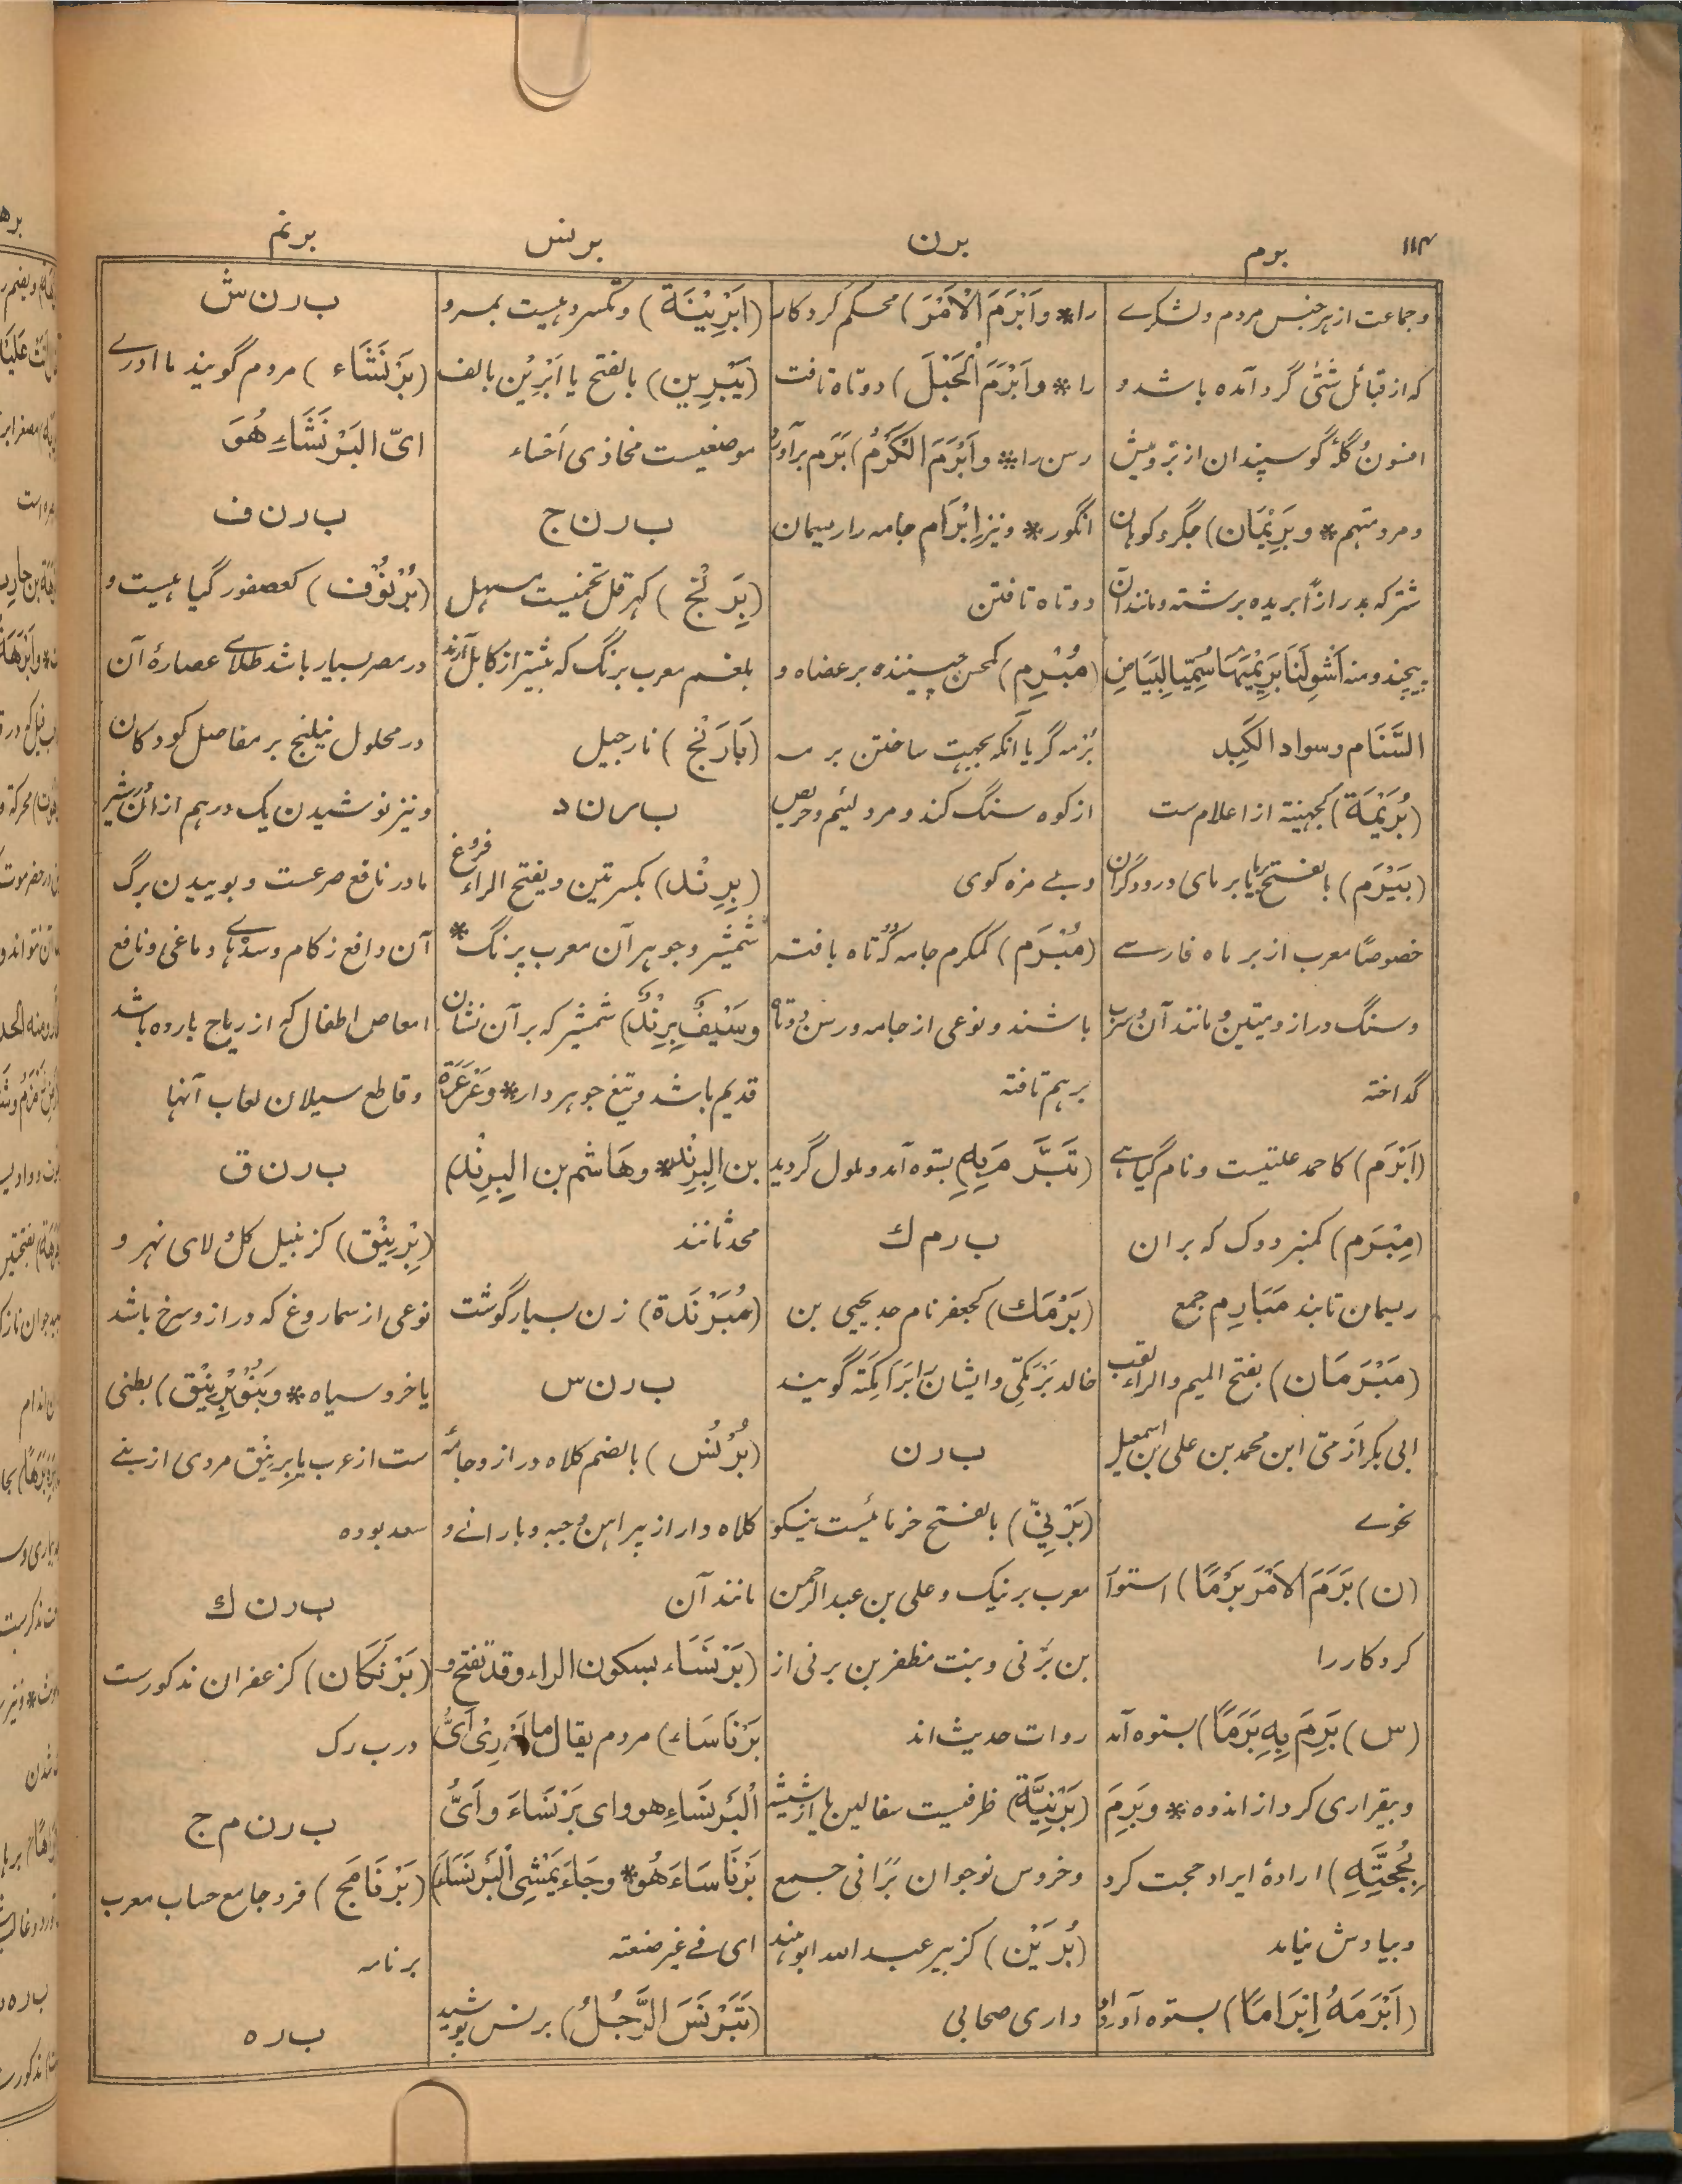 ۱۱۴
برم
برن
برنس
برنم
وجماعت از هر جنس مردم و لشکرے
که از قبائل شتّٰی گرد آمده باشد و
افسون و گلۀ گوسپندان از بز و میش
و مرد متهم * و بَرِیْمَان) جگر و کوهان
شتر که بدرازا بریده برشته و مانند آن
پیچند و منه اَشْوِ لَنَا بَرِیْمَیْهَا سُمِّیَا لِبَیَاضِ
السَّنَام وسواد الکَبِد
(بُرَیْمَة) کجهینة از اعلام ست
(بَیْرَم) بالفتح یا برمای درودگران
خصوصًا معرب از بر ماه فارسے
و سنگ دراز و میتین و مانند آن و سرب
گداخته
(اَبْرَم) کاحمد علتیست و نام گیاهے
(مِبْرَم) کمنبر دوک که بر ان
ریسمان تابند مَبَارِم جمع
(مَبْرَمَان) بفتح المیم والراء لقب
ابی بکر ازمتی ابن محمد بن علی بن اسمعیل
نحوے
(ن) بَرَمَ الاَمْرَ بَرْمًا) استوار
کرد کار را
(س) بَرِمَ بِهٖ بَرَمًا) بستوه آمد
و بیقراری کرد از اندوه * وبَرِمَ
بِحُجَّتِهٖ) ارادۀ ایراد حجت کرد
و بیادش نیامد
(اَبْرَمَهُ اِبْرَامًا) بستوه آورد او
را * واَبْرَمَ الْاَمْرَ) محکم کرد کار
را * واَبْرَمَ الْحَبْلَ) دوتاه تافت
رسن را * واَبْرَمَ الْکَرْمُ) بَرَم برآورد
انگور * و نیز اِبْرَام جامه را ریسمان
دوتاه تافتن
(مُبْرِم) کمحسن چیننده بر عضاه و
بُرمه گر یا آنکه بجهت ساختن برمه
از کوه سنگ کند و مرد لئیم و حریص
و بے مزه کوی
(مُبْرَم) کمکرم جامه که دوتاه بافته
باشند و نوعی از جامه و رسن دوتاه
برهم تافته
(تَبَرَّمَ بِهٖ) بستوه آمد و ملول گردید
ب ر م ك
(بَرْمَك) کجعفر نام جد یحیی بن
خالد بَرْمَکِّی و ایشان را بَرَامِکَة گویند
ب ر ن
(بَرْنِیّ) بالفتح خرمائیست نیکو
معرب برنیک و علی بن عبد الرحمن
بن بَرْنی و بنت مظفر بن برنی از
روات حدیث اند
(بَرْنِیَّة) ظرفیست سفالین یا از شیشه
و خروس نوجوان بَرَانی جمع
(بُرَیْن) کزبیر عبد الله ابو هند
داری صحابی
(اَبْرِیْنَة) ونکسر دهیست بمرو
(یَبْرِین) بالفتح یا اَبْرِیْن بالف
موضعیست محاذی اَحْساء
ب ر ن ج
(بِرَنْج) کهرقل تخمیست مسهل
بلغم معرب برنگ که بیشتر از کابل آرند
(بَارَنْج) نارجیل
ب ر ن د
(بِرِنْد) بکسرتین و یفتح الراء فروغ
شمشیر و جوهر آن معرب پرنگ *
وسَیْفٌ بِرِنْدٌ) شمشیر که بر آن نشان
قدیم باشد و تیغ جوهر دار * وعَرْعَرَة
بن البِرِنْد * وهَاشم بن البِرِنْد)
محدثانند
(مُبَرْنَدَة) زن بسیار گوشت
ب ر ن س
(بُرْنُس) بالضم کلاه دراز و جامۀ
کلاه دار از پیراهن و جبه و بارانے و
مانند آن
(بَرْنَسَاء بسکون الراء وقد تفتح و
بَرْنَاسَاء) مردم یقال ما اَدْرِیْ اَیُّ
الْبَرْنَسَاءِ هو وای بَرْنَسَاءَ واَیُّ
بَرْنَاسَاءَ هُوَ * وجَاءَ یَمْشِی الْبَرْنَسَاءَ)
ای فے غیر صنعته
(تَبَرْنَسَ الرَّجُلُ) برنس پوشید
ب ر ن ش
(بَرْنَشَاء) مردم گویند ما ادرے
ایّ البَرْنَشَاءِ هُوَ
ب ر ن ف
(بُرْنُوْف) کعصفور گیاهیست و
در مصر بسیار باشد طلاے عصارۀ آن
در محلول نیلنج بر مفاصل کودکان
و نیز نوشیدن یک درهم ازان در شیر
مادر نافع صرعست و بوییدن برگ
آن دافع زکام و سدّهاے دماغی و نافع
امعاص اطفال که از ریاح بارده باشد
و قاطع سیلان لعاب آنها
ب ر ن ق
(بِرْنِیْق) کزنبیل گل و لای نهر و
نوعی از سماروغ که دراز و سرخ باشد
یا خرد سیاه * وبَنُو بِرْنِیْق) بطنی
ست از عرب یا برنیق مردی از بنے
سعد بوده
ب ر ن ك
(بَرْنَکَان) کزعفران مذکورست
در ب ر ک
ب ر ن م ج
(بَرْنَامَج) فرد جامع حساب معرب
برنامه
ب ر ه